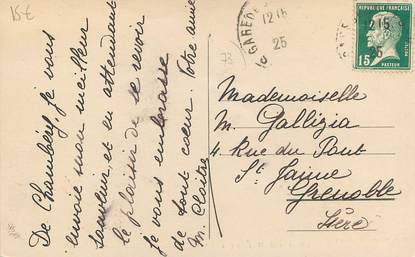 15€
De Chambéry je vous
envoie mon meilleur
souvenir, et en attendant
le plaisir de se revoir
je vous embrasse
de tout coeur. Votre amie
M. Cloître
73
GARE DE
12 15
25
12 15
REPUBLIQUE FRANÇAISE
15c
PASTEUR
POSTES
Mademoiselle
M. Gallizia
4 Rue du Pont
St Jaime
Grenoble
Isère